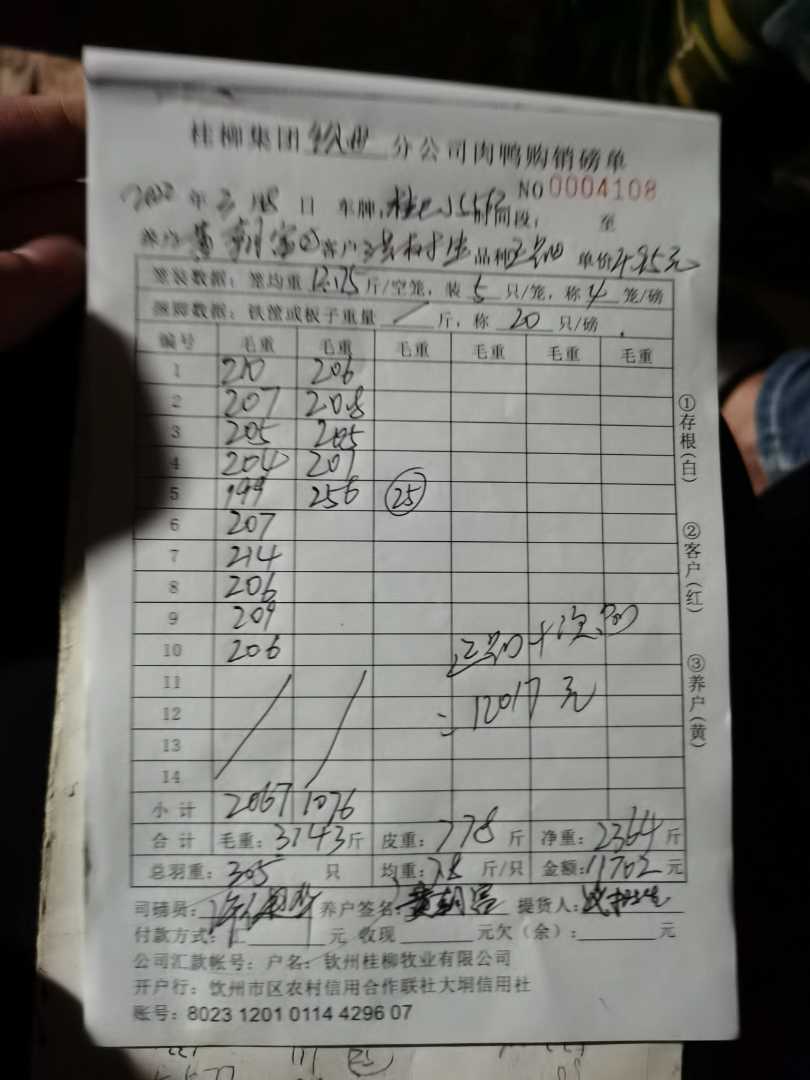 桂柳集团 分公司肉鸭购销磅单
NO 0004108
2022 年 3 月8 日 车牌: 时间段: 至
养户 黄朝 客户 品种 正品 单价4.95元
笼装数据:笼均重 12.175 斤/空笼,装 5 只/笼,称 4 笼/磅
捆脚数据:铁笼或板子重量 / 斤,称 20 只/磅
编号 毛重 毛重 毛重 毛重 毛重 毛重
1 210 206
2 207 208
3 205 205
4 204 207
5 199 256 25
6 207
7 214
8 206
9 209
10 206
正品+次品
11
=12017元
12
13
14
小计 2067 1076
合计 毛重:3143斤 皮重:778 斤 净重:2364斤
总羽重:305 只 均重:7.8 斤/只 金额:11702元
司磅员: 养户签名: 提货人:
付款方式:汇 元 收现 元欠(余): 元
公司汇款帐号:户名:钦州桂柳牧业有限公司
开户行:钦州市区农村信用合作联社大垌信用社
账号:8023 1201 0114 4296 07
①存根(白)
②客户(红)
③养户(黄)